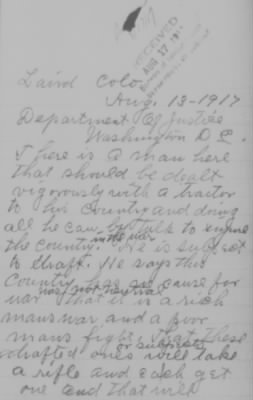 RECEIVED
AUG 17 191
Laird Colo.
Aug. 13-1917
Department Of Justice
Washington D C.
There is a man here
that should be dealt
vigorously with a traitor
to his country and doing
all he can by talk to injure
in the war
the country. He is subject
to draft. He says this
Country has no cause for
war that it is a rich
mans war and a poor
mans fight, that these
or subjects
drafted ones will take
a rifle and each get
one and that will